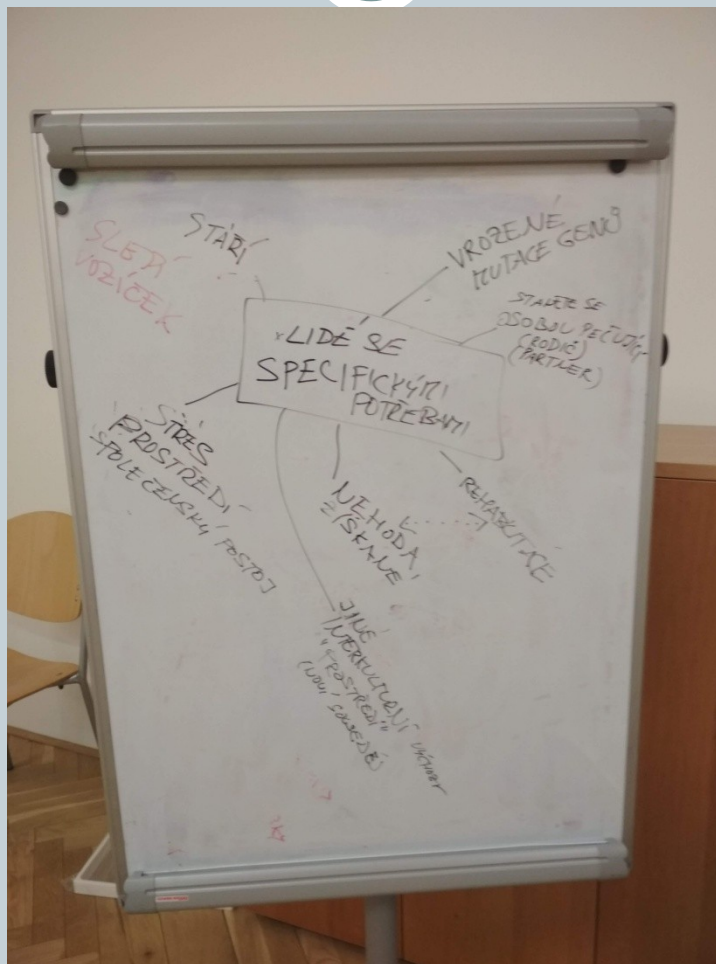 STÁŘÍ
SLEPÍ
VOZÍČEK
VROZENÉ
MUTACE GENŮ
STANETE SE
OSOBOU PEČUJÍCÍ
(RODIČ)
(PARTNER)
LIDÉ SE
SPECIFICKÝMI
POTŘEBAMI
STRES
PROSTŘEDÍ
SPOLEČENSKÝ POSTOJ
NEHODA,
ZÍSKANÉ
REHABILITACE
JINÉ
INTERKULTURNÍ
"PROSTŘEDÍ"
(NOVÍ SOUSEDÉ)